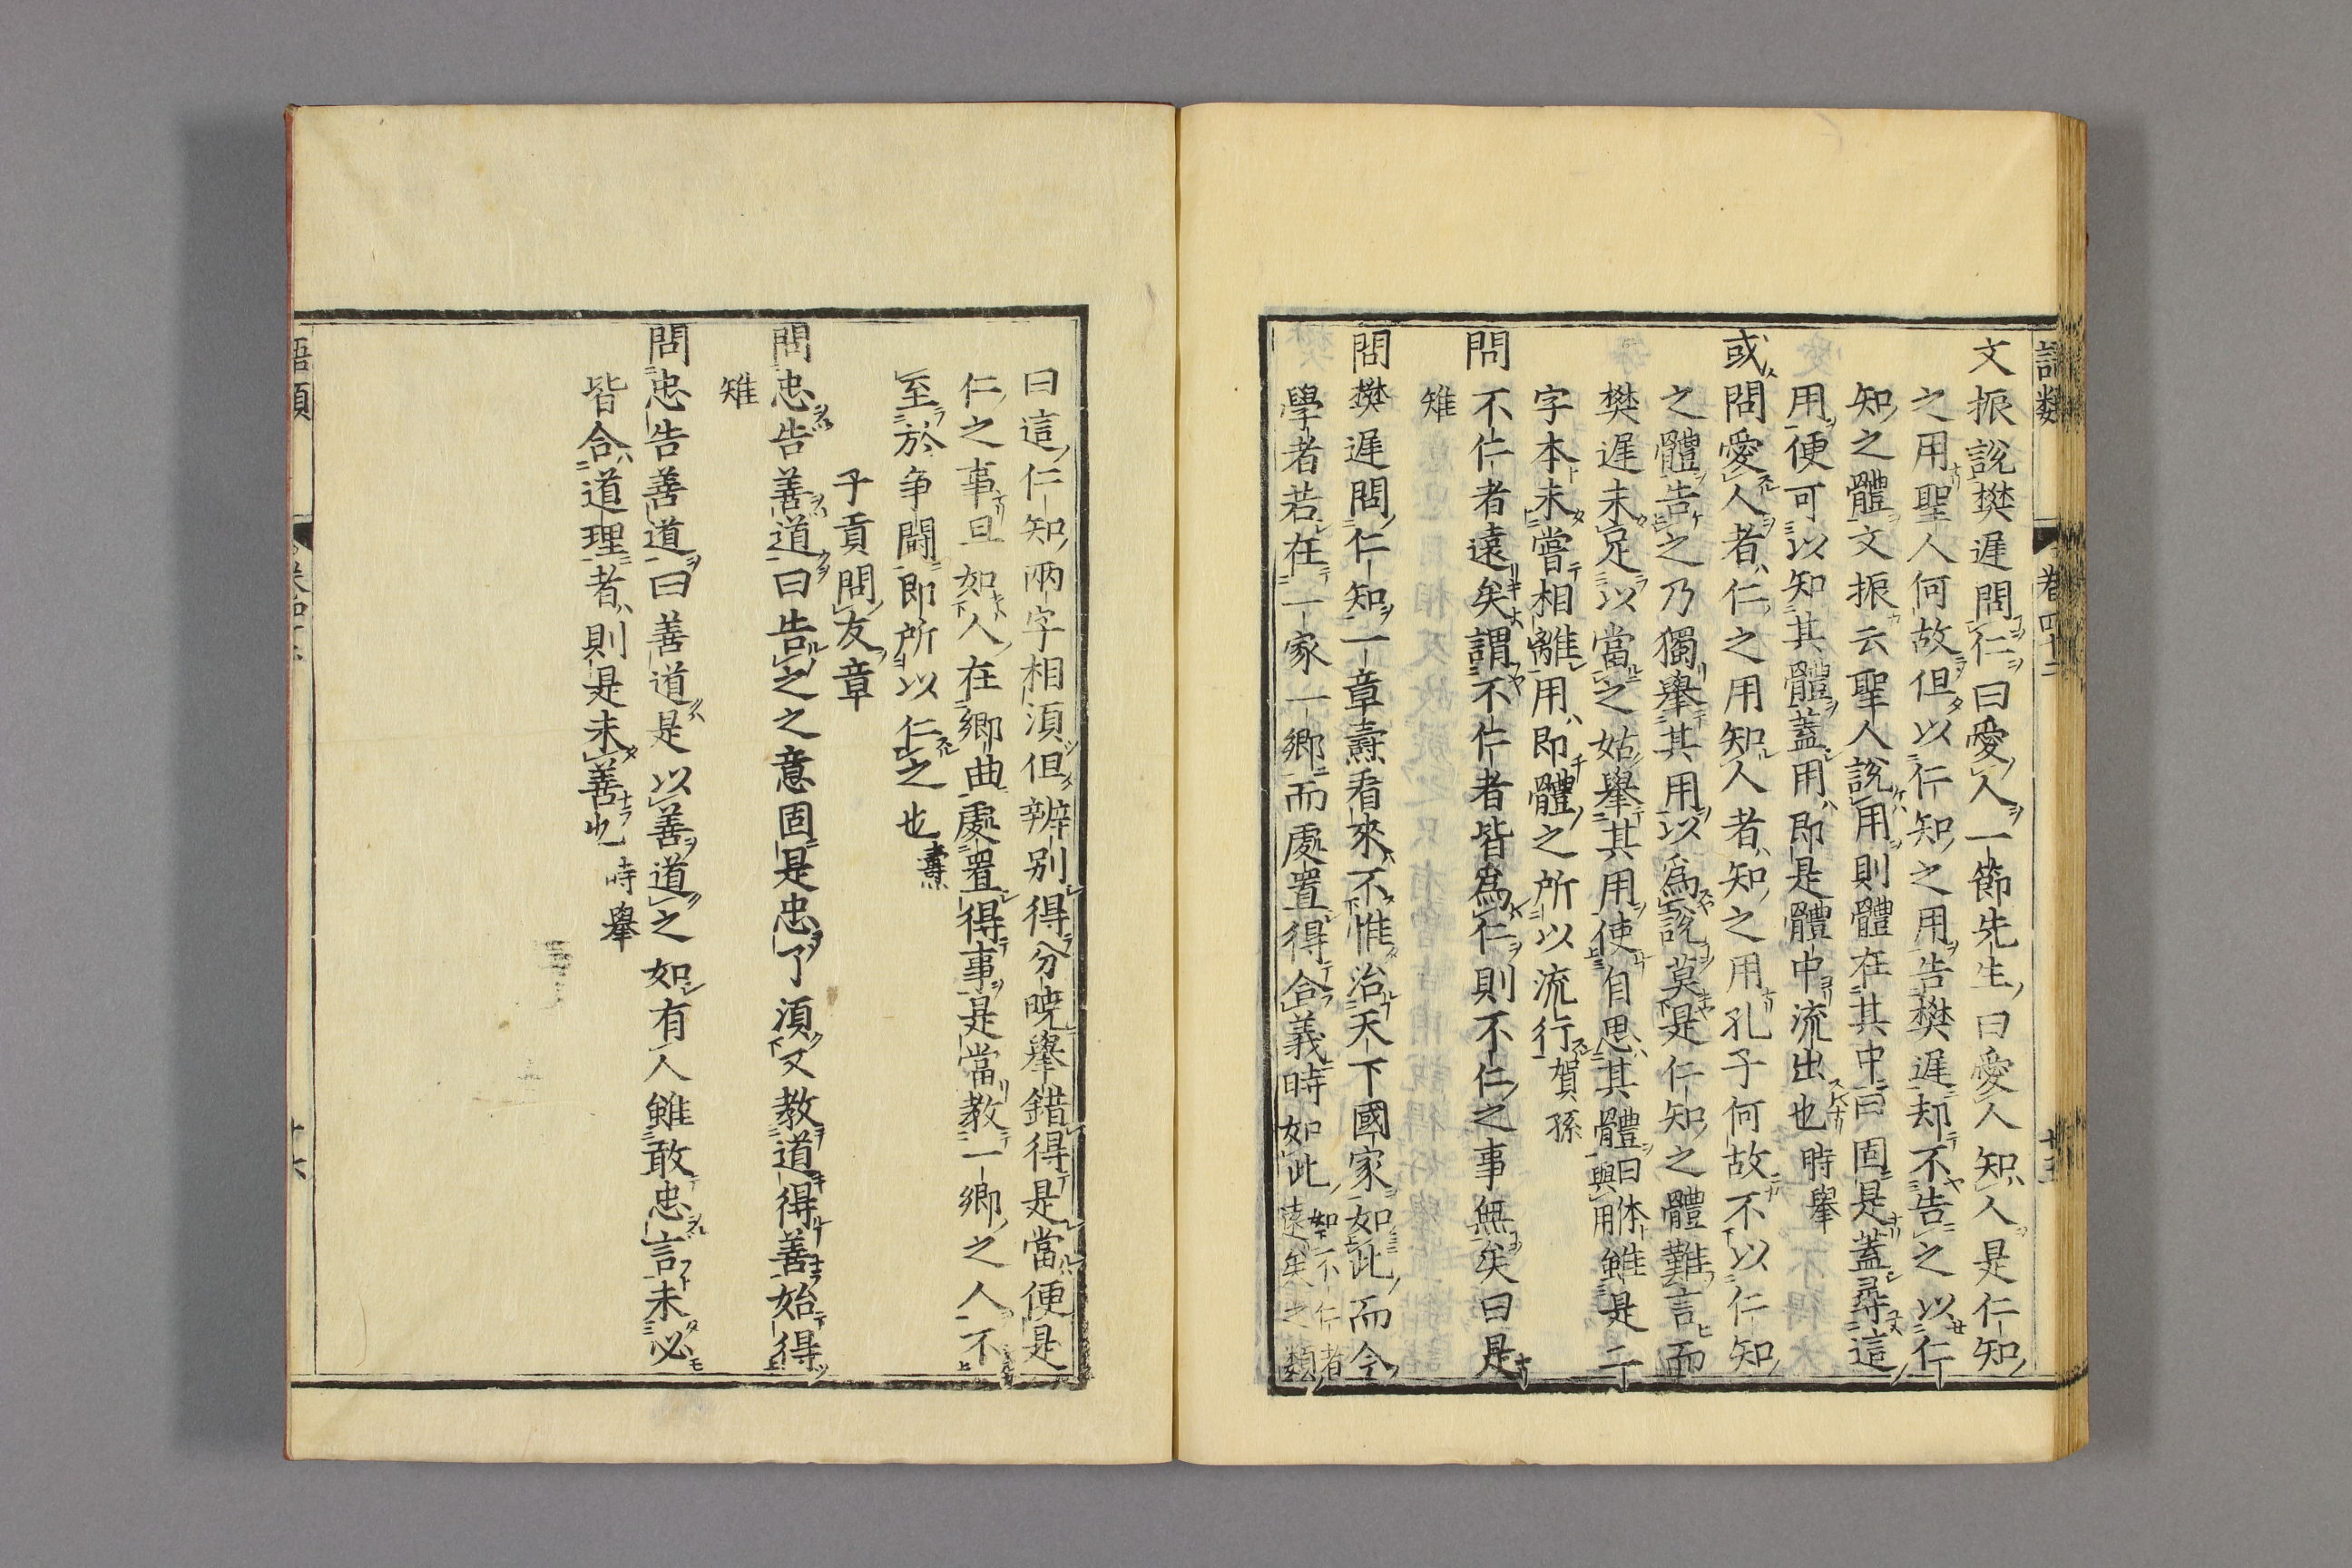 語類
卷四十二
文振說樊遲問仁曰愛人一節先生曰愛人知人是仁知
之用聖人何故但以仁知之用告樊遲却不告之以仁
知之體文振云聖人說用則體在其中曰固是蓋尋這
用便可以知其體蓋用即是體中流出也 時舉
或問愛人者仁之用知人者知之用孔子何故不以仁知
之體告之乃獨舉其用以爲說莫是仁知之體難言而
樊遲未足以當之姑舉其用使自思其體曰体與用雖是二
字本未嘗相離用即體之所以流行 賀孫
問不仁者遠矣謂不仁者皆爲仁則不仁之事無矣曰是
雉
問樊遲問仁知一章燾看來不惟治天下國家如此而今
學者若在一家一鄉而處置得合義時如此如不仁者遠矣之類
曰這仁知兩字相須但辨別得分曉舉錯得是當便是
仁之事且如人在鄉曲處置得事是當教一鄉之人不
至於争鬪即所以仁之也 燾
子貢問友章
問忠告善道曰告之之意固是忠了須又教道得善始得
雉
問忠告善道曰善道是以善道之如有人雖敢忠言未必
皆合道理者則是未善也 時舉